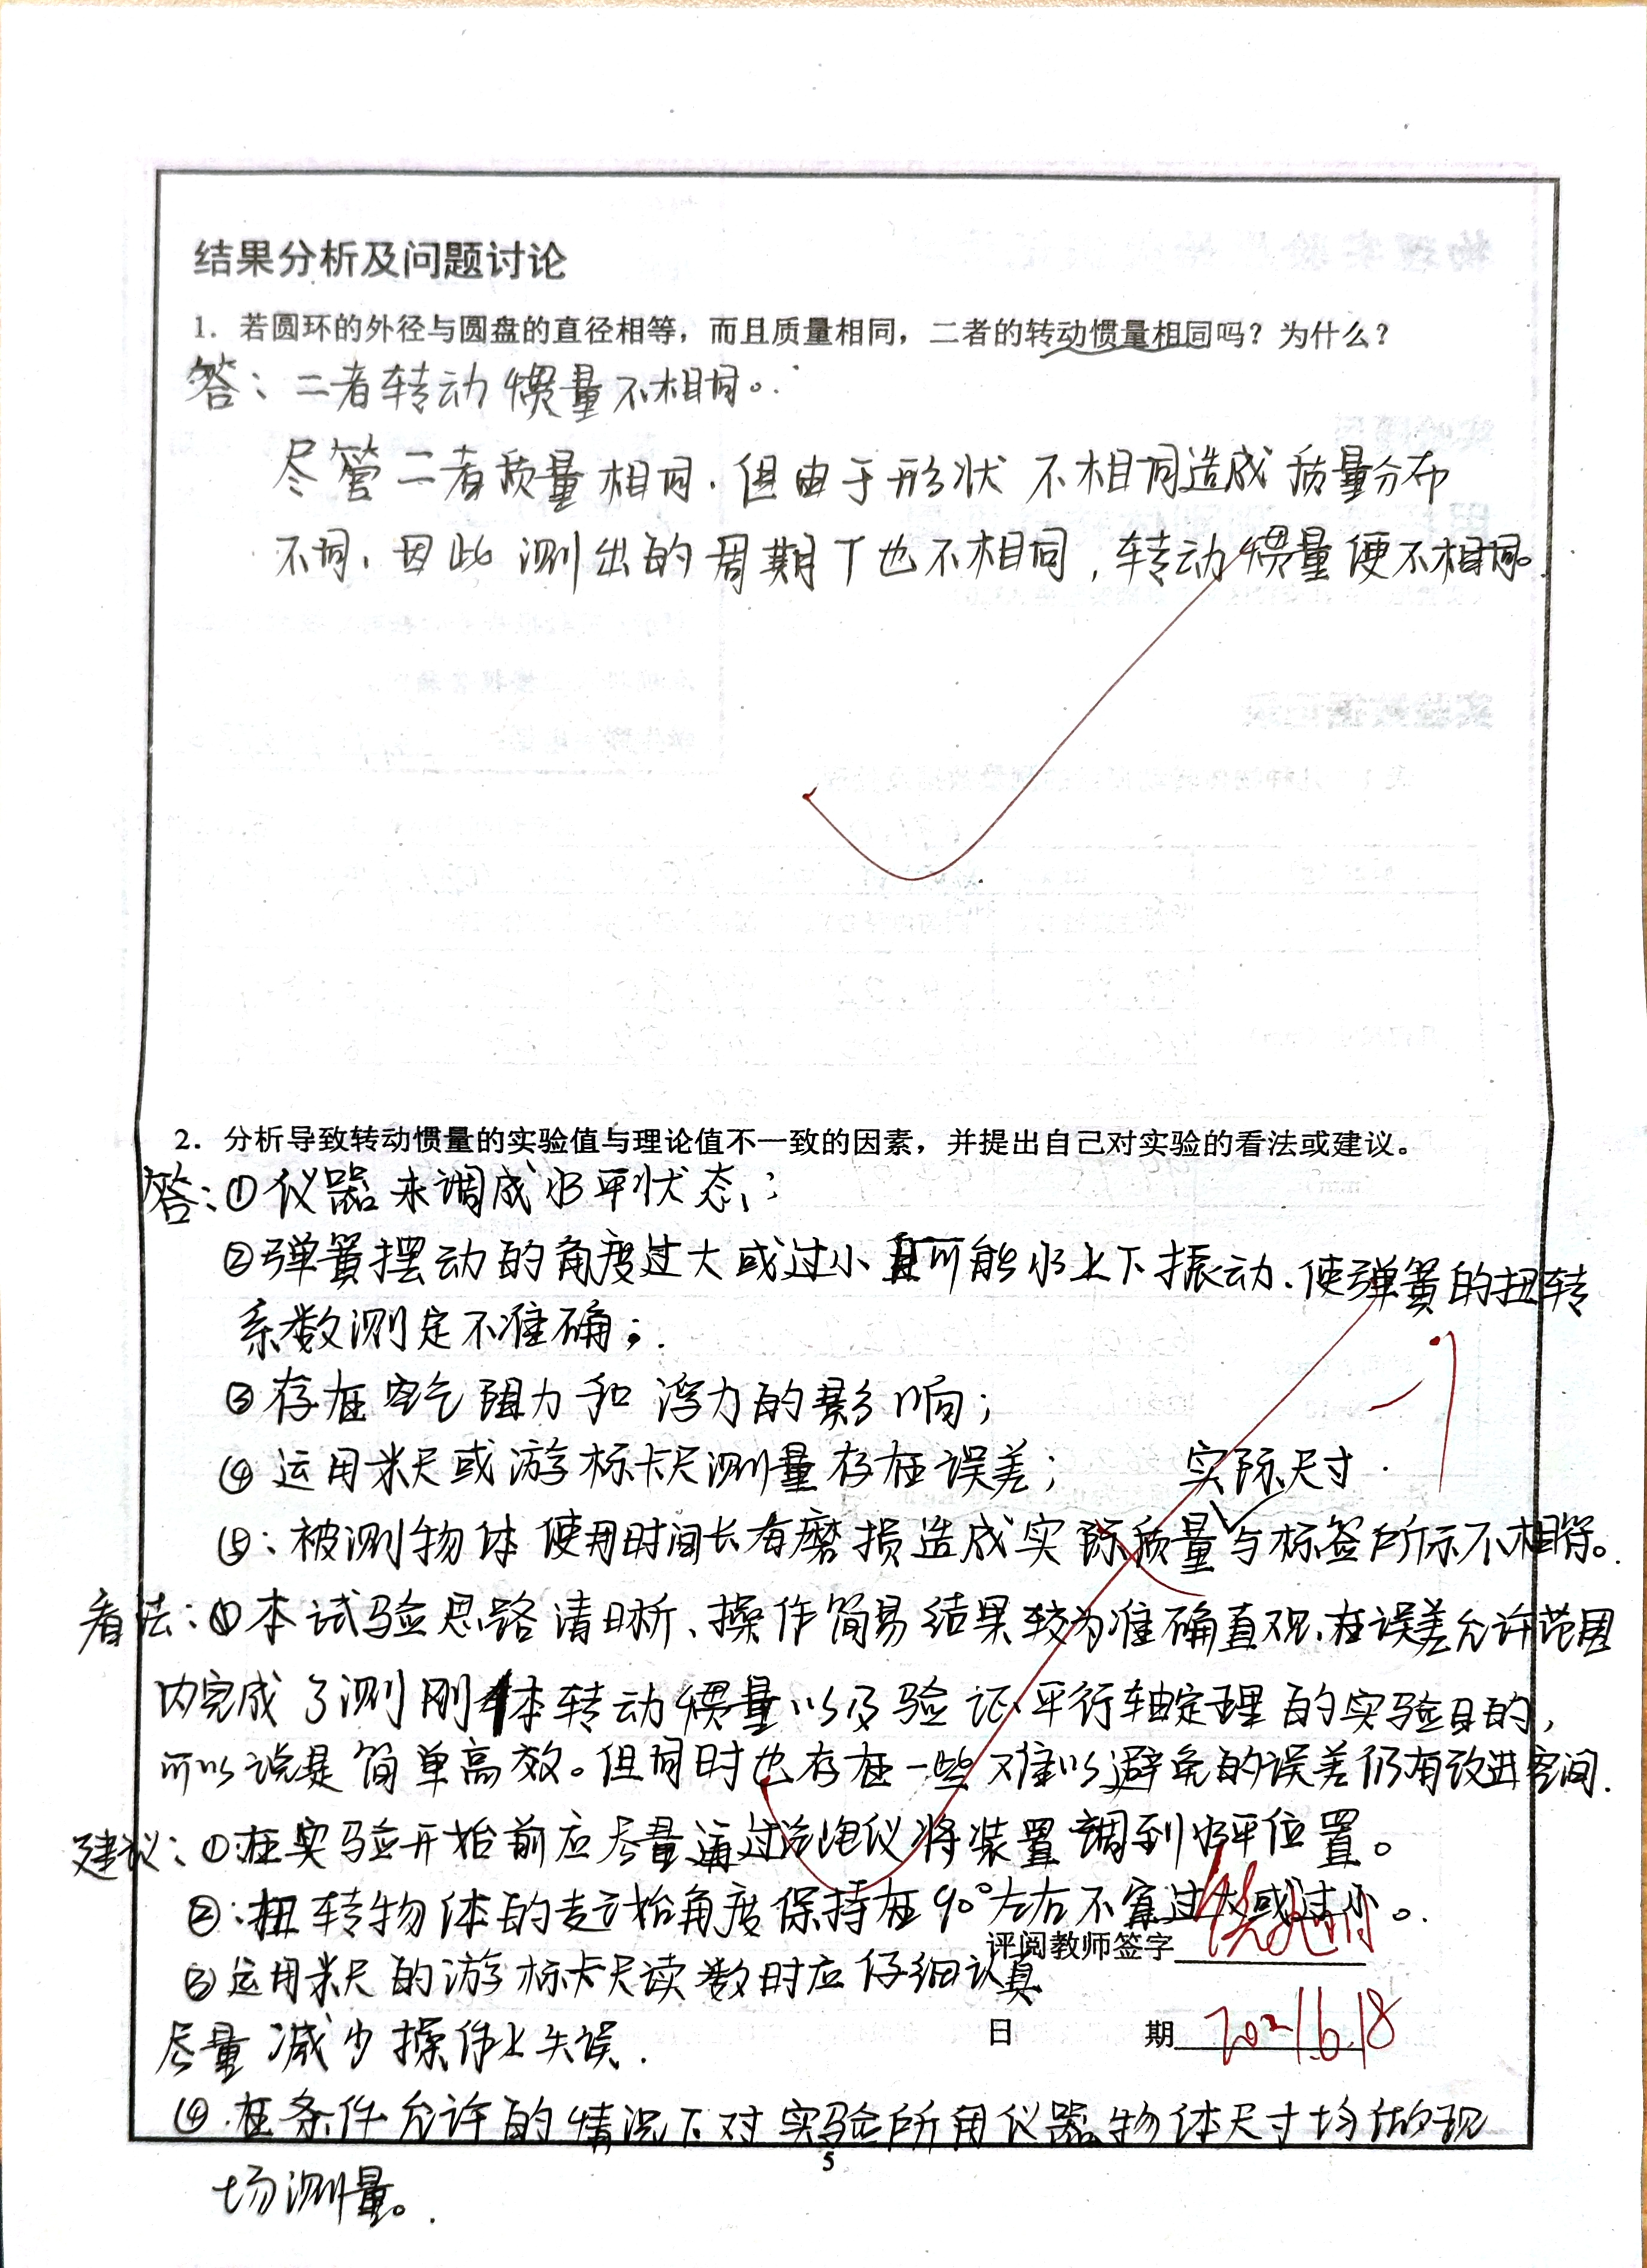 结果分析及问题讨论
1. 若圆环的外径与圆盘的直径相等，而且质量相同，二者的转动惯量相同吗？为什么？
答：二者转动惯量不相同。
尽管二者质量相同，但由于形状不相同造成质量分布
不同，因此测出的周期T也不相同，转动惯量便不相同。
2. 分析导致转动惯量的实验值与理论值不一致的因素，并提出自己对实验的看法或建议。
答：①仪器未调成水平状态；
②弹簧摆动的角度过大或过小且可能水上下振动、使弹簧的扭转
系数测定不准确；
③存在空气阻力和浮力的影响；
④运用米尺或游标卡尺测量存在误差；
实际尺寸
⑤：被测物体使用时间长有磨损造成实际质量与标签所示不相符。
-1
看法：①本试验思路清晰、操作简易结果较为准确直观、在误差允许范围
内完成了测刚体转动惯量以及验证平行轴定理的实验目的，
可以说是简单高效。但同时也存在一些难以避免的误差仍有改进空间.
建议：①在实验开始前应尽量通过气泡仪将装置调到水平位置。
②：扭转物体的起始角度保持在90°左右不宜过大或过小。
评阅教师签字
③运用米尺的游标卡尺读数时应仔细认真
日 期 2021.6.18
尽量减少操作上失误.
④.在条件允许的情况下对实验所用仪器物体尺寸均做现
5
场测量。